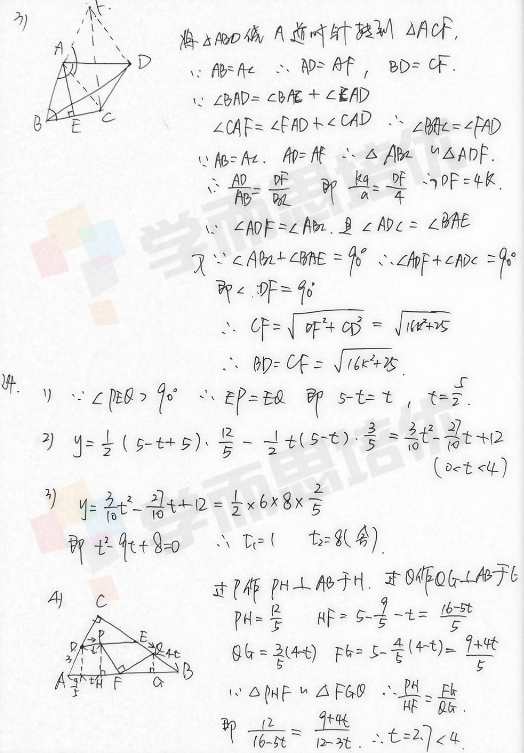 3)
将△ABD绕 A 逆时针转到 △ACF.
∵ AB=AC ∴ AD=AF , BD=CF.
∵ ∠BAD=∠BAC+∠CAD
∠CAF=∠FAD+∠CAD ∴ ∠BAC=∠FAD
∵ AB=AC. AD=AF ∴ △ABC ∽ △ADF.
∴ AD/AB = DF/BC 即 ka/a = DF/4 ∴ DF=4k.
∵ ∠ADF=∠ABC 且 ∠ADC=∠BAE
又∵ ∠ABC+∠BAE=90° ∴ ∠ADF+∠ADC=90°
即∠CDF=90°
∴ CF=√(DF²+CD²) = √(16k²+25)
∴ BD=CF=√(16k²+25).
A
B
C
D
E
F
24. 1) ∵ ∠PEQ>90° ∴ EP=EQ 即 5-t=t , t=5/2.
2) y=1/2(5-t+5)·12/5 - 1/2t(5-t)·3/5 = 3/10t²-27/10t+12
(0<t<4)
3) y=3/10t²-27/10t+12=1/2×6×8×2/5
即 t²-9t+8=0 ∴ t₁=1 t₂=8(舍).
4)
过P作 PH⊥AB于H. 过Q作QG⊥AB于G
PH=12/5 HF=5-9/5-t=(16-5t)/5
QG=3/5(4-t) FG=5-4/5(4-t)=(9+4t)/5
∵ △PHF ∽ △FGQ ∴ PH/HF=FG/QG.
即 12/(16-5t)=(9+4t)/(12-3t). ∴ t=2.7<4.
C
D
t
P
E
Q
4-t
3
A
9/5
t
H
F
G
B
学而思培优
学而思培优